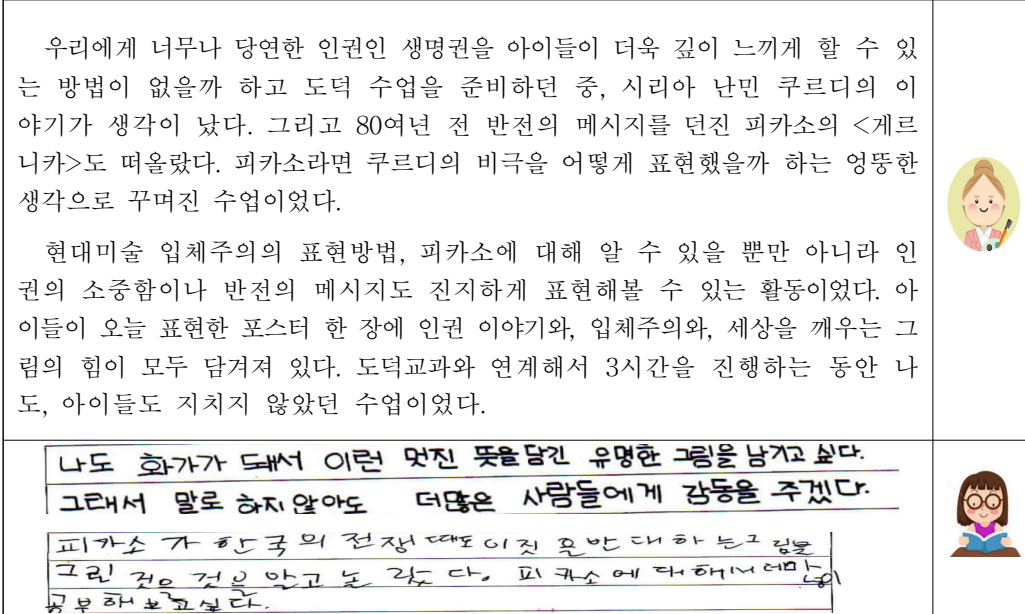 우리에게 너무나 당연한 인권인 생명권을 아이들이 더욱 깊이 느끼게 할 수 있
는 방법이 없을까 하고 도덕 수업을 준비하던 중, 시리아 난민 쿠르디의 이
야기가 생각이 났다. 그리고 80여년 전 반전의 메시지를 던진 피카소의 <게르
니카>도 떠올랐다. 피카소라면 쿠르디의 비극을 어떻게 표현했을까 하는 엉뚱한
생각으로 꾸며진 수업이었다.
현대미술 입체주의의 표현방법, 피카소에 대해 알 수 있을 뿐만 아니라 인
권의 소중함이나 반전의 메시지도 진지하게 표현해볼 수 있는 활동이었다. 아
이들이 오늘 표현한 포스터 한 장에 인권 이야기와, 입체주의와, 세상을 깨우는 그
림의 힘이 모두 담겨져 있다. 도덕교과와 연계해서 3시간을 진행하는 동안 나
도, 아이들도 지치지 않았던 수업이었다.
나도 화가가 돼서 이런 멋진 뜻을 담긴 유명한 그림을 남기고 싶다.
그래서 말로 하지 않아도 더 많은 사람들에게 감동을 주겠다.
피카소가 한국의 전쟁 때도 반대하는 그림을
그린 것은 알고 피카소에 대해서
공부해보고싶다.